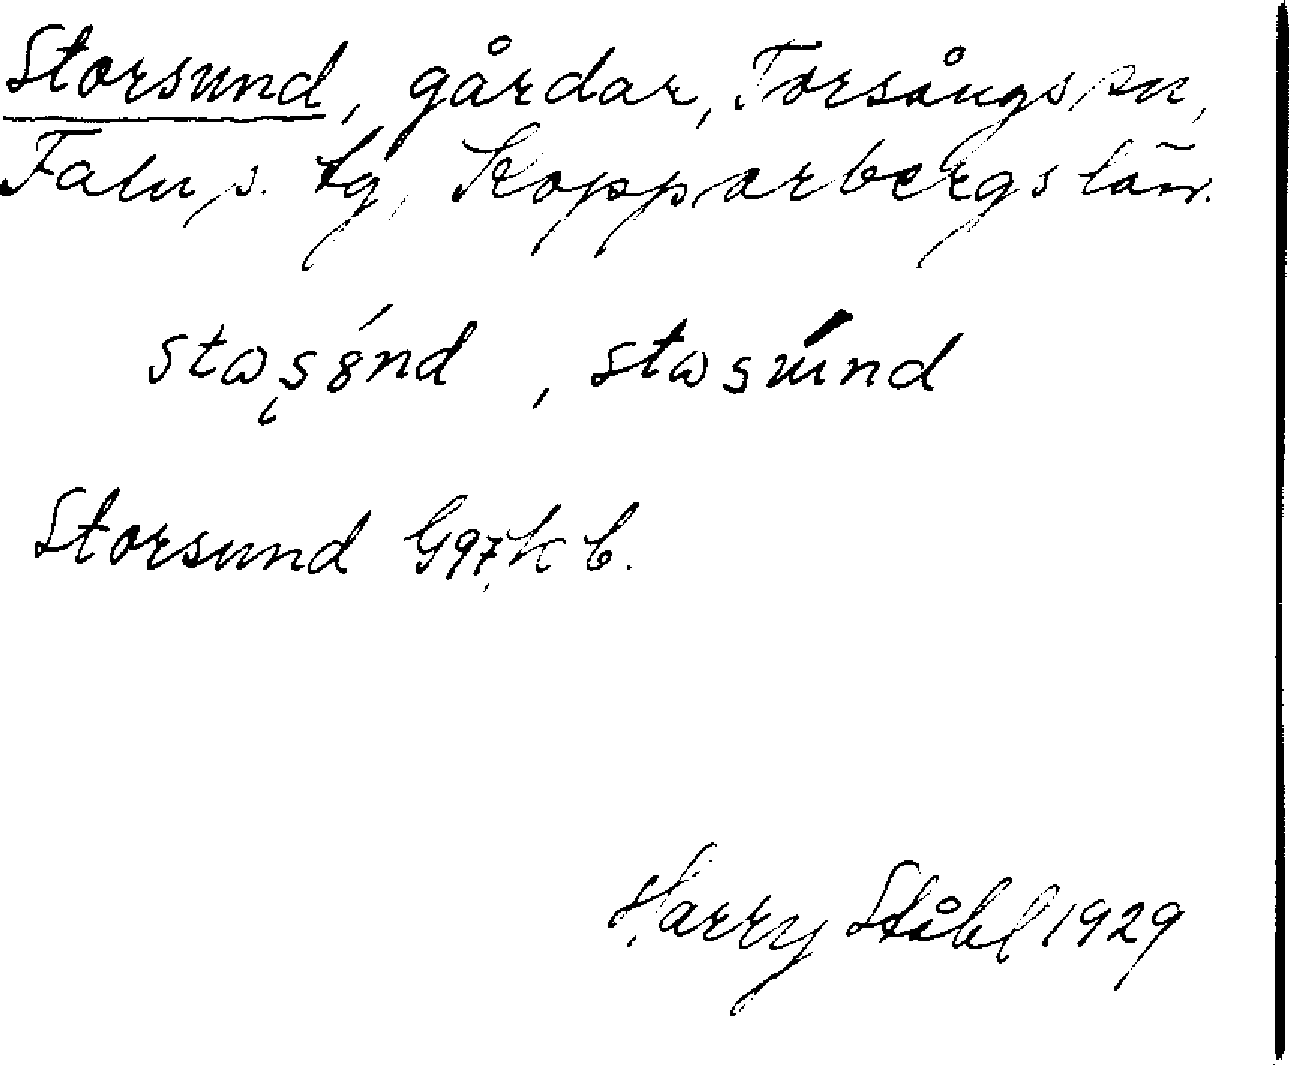 Storsund, gårdar, Torsångs sn,
Falu s. tg, Kopparbergs län.
Storsund G97, kb.
Harry Ståhl 1929